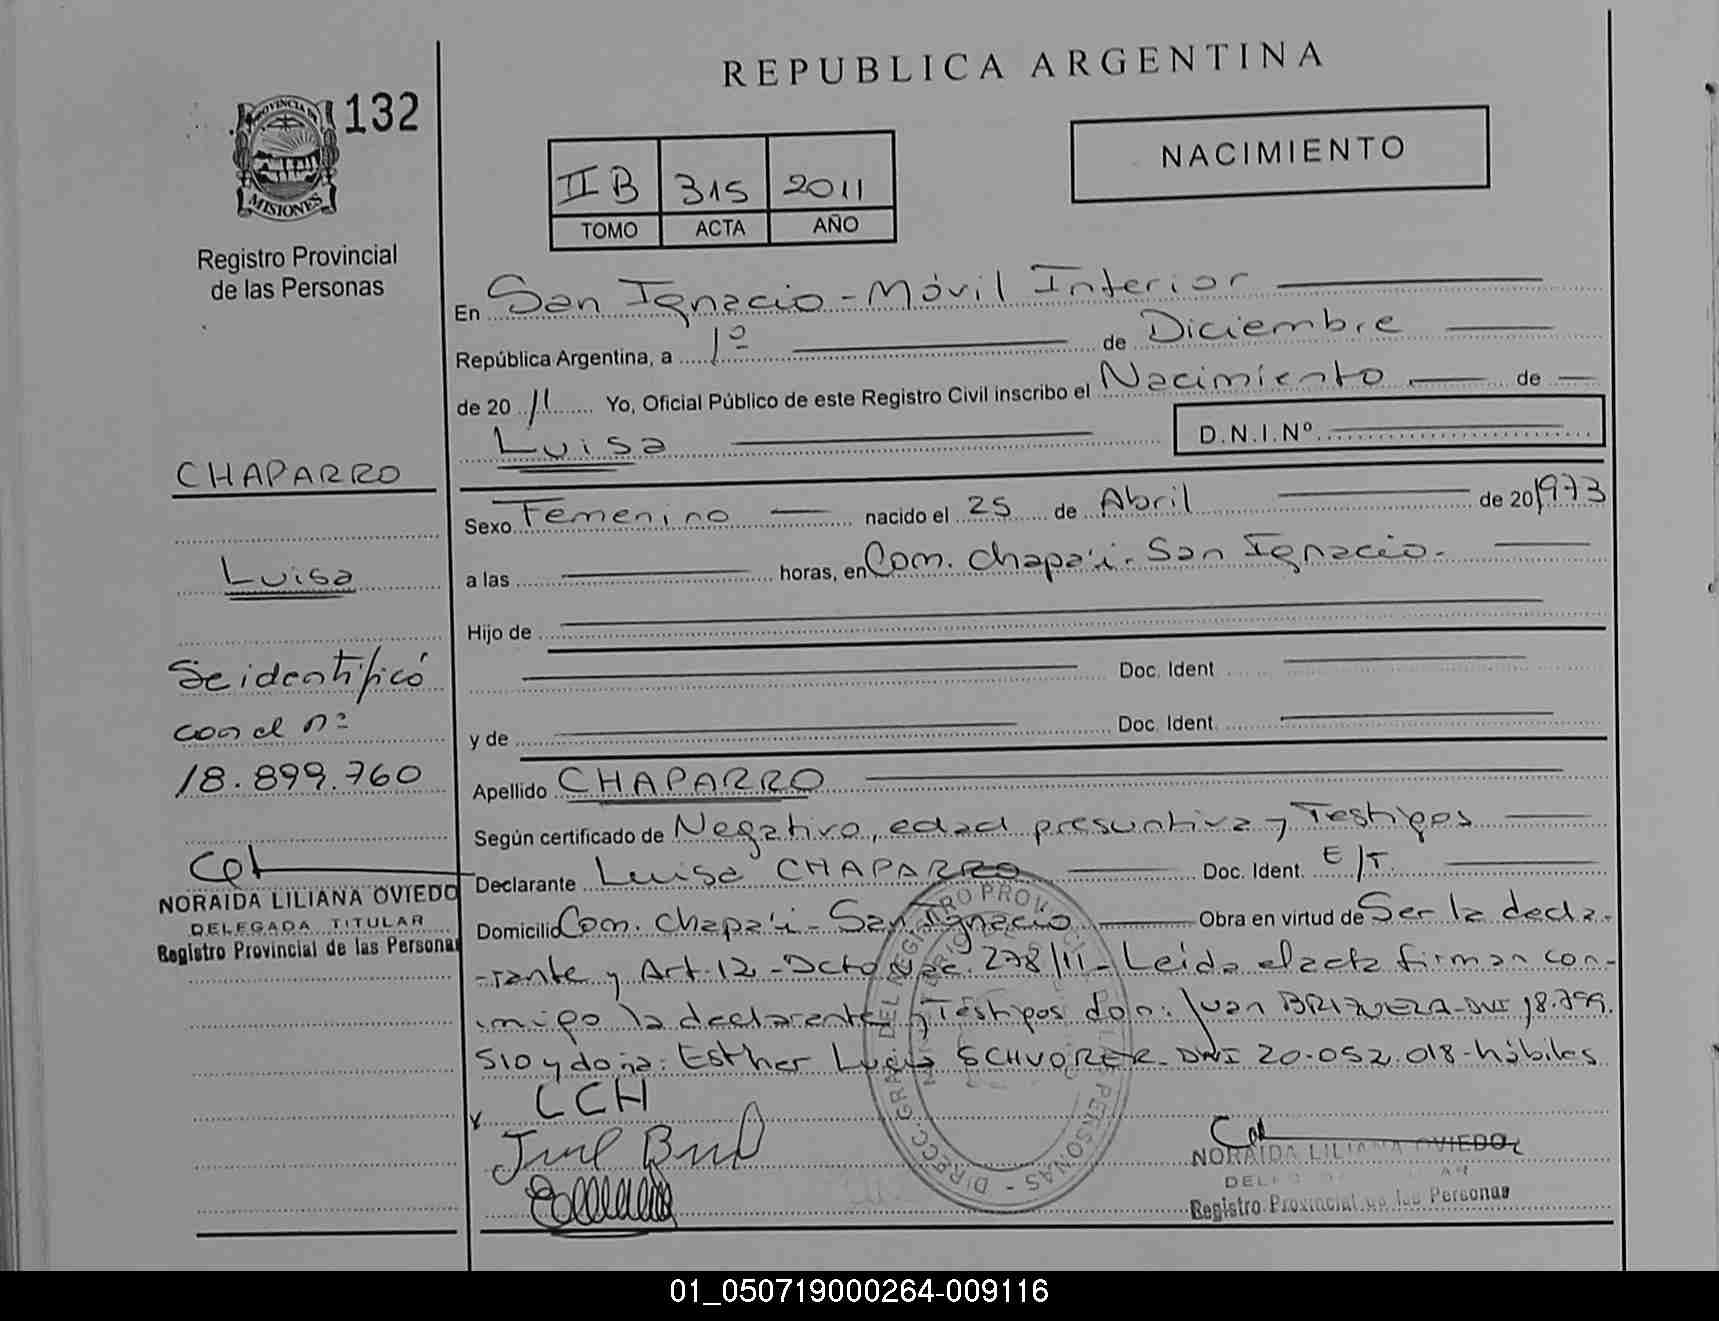 REPUBLICA ARGENTINA
PROVINCIA DE
MISIONES
132
Registro Provincial
de las Personas
II B 315 2011
TOMO ACTA AÑO
NACIMIENTO
En San Ignacio - Móvil Interior
República Argentina, a 1º de Diciembre
de 20 11 Yo, Oficial Público de este Registro Civil inscribo el Nacimiento de
Luisa D.N.I.Nº
CHAPARRO
Luisa
Se identificó
con el nº
18.899.760
NORAIDA LILIANA OVIEDO
DELEGADA TITULAR
Registro Provincial de las Personas
Sexo Femenino nacido el 25 de Abril de 20 1973
a las horas, en Com. Chapa'i - San Ignacio.
Hijo de
Doc. Ident
y de Doc. Ident.
Apellido CHAPARRO
Según certificado de Negativo, edad presuntiva y Testigos
Declarante Luisa CHAPARRO Doc. Ident. E/T.
Domicilio Com. Chapa'i - San Ignacio Obra en virtud de Ser la decla-
-rante y Art. 12 - Dcto Nac. 278/11 - Leida el acta firman con-
migo la declarante y Testigos don: Juan BRIZUELA - DNI 18.799.
510 y doña: Esther Lucia SCHVORER - DNI 20.052.018 - hábiles
LCH
NORAIDA LILIANA OVIEDO
Registro Provincial de las Personas
01_050719000264-009116